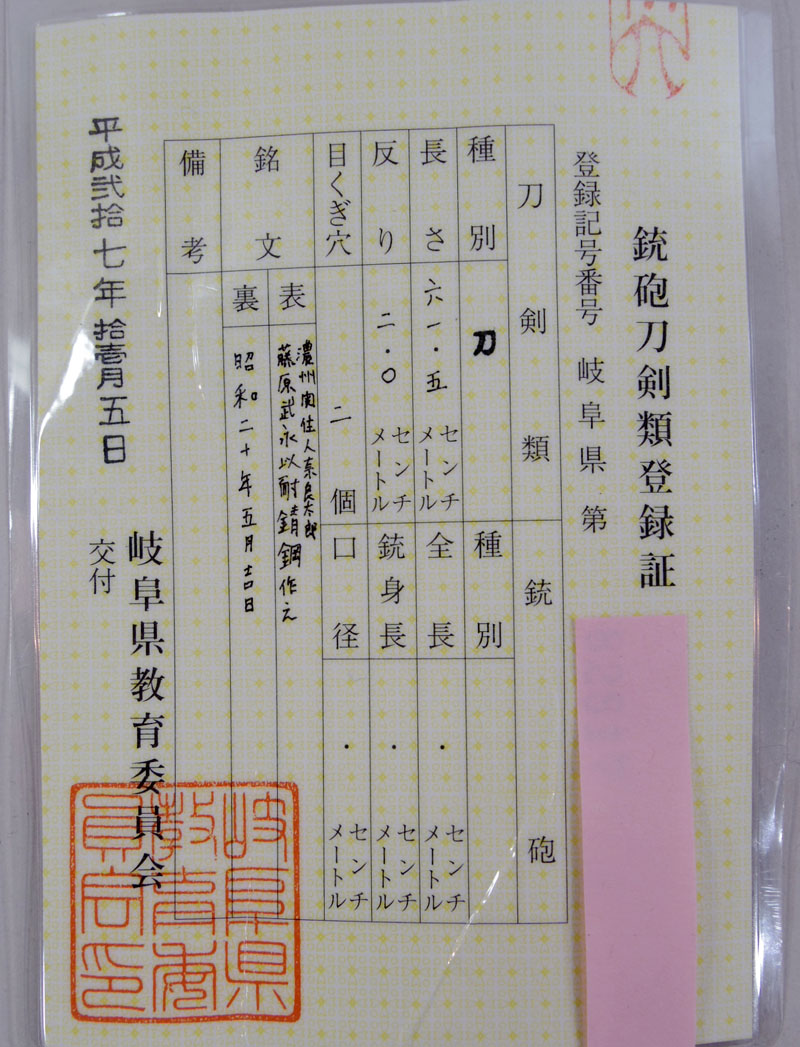 銃砲刀剣類登録証
登録記号番号 岐阜県 第
刀剣類
銃砲
種別 刀
種別
長さ 六一・五 センチメートル
全長 ・ センチメートル
反り 二・〇 センチメートル
銃身長 ・ センチメートル
目くぎ穴 二個
口径 ・ センチメートル
銘文
表 濃州関住人奈良太郎
藤原武永以耐錆鋼作之
裏 昭和二十年五月吉日
備考
平成弐拾七年拾壹月五日
交付
岐阜県教育委員会
岐阜県
教育委
員会印